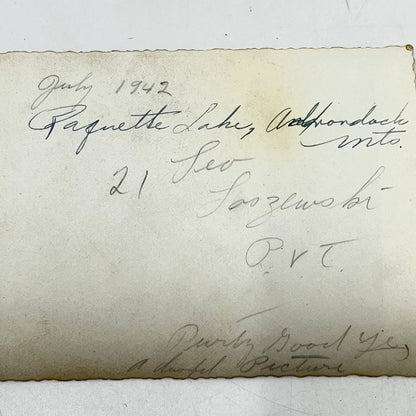 July 1942
Raquette Lake, Adirondack
Mts.
Leo
21
Soszewski
P.v.T.
Purty Good
Picture